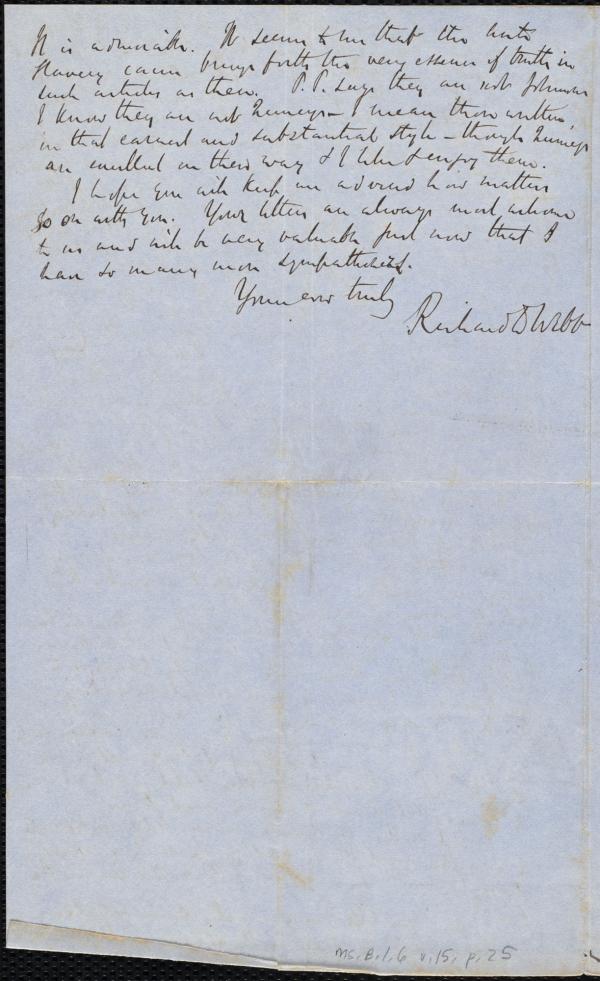 It is admirable. It seems to me that the anti
slavery cause brings forth the very essence of truth in
such articles as these. P.P. says they are not Johnson's
I know they are not Quincys — I mean those written
in that earnest and substantial style — though Quincys
are excellent in their way & I like & enjoy them.
I hope you will keep me advised how matters
go on with you. Your letters are always most welcome
to us and will be very valuable just now that I
have so many more sympathizers.
Yours ever truly
Richard D Webb
MS. B. 1. 6 v. 15, p. 25